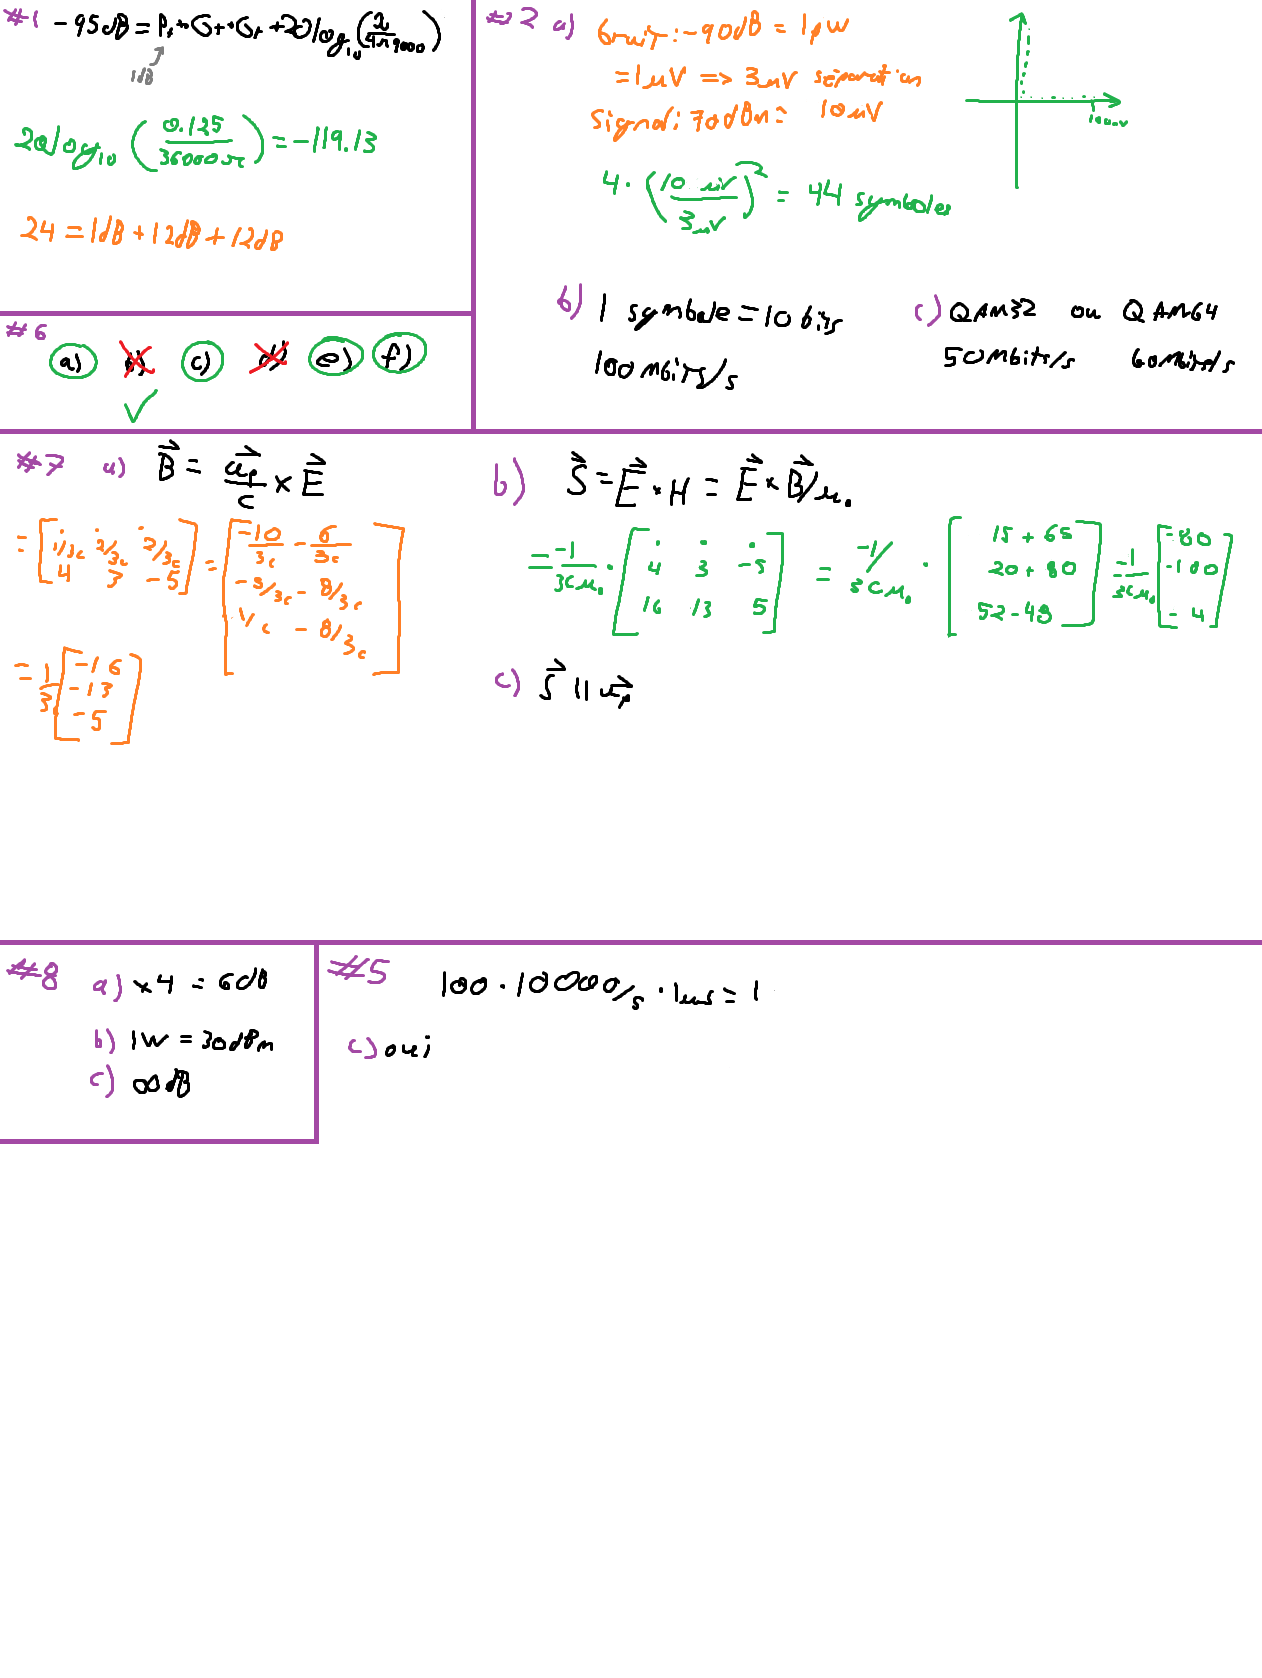 #1 -95dB = Pt + Gt + Gr + 20log10(λ/4π9000)
1dB
20log10(0.125/36000π) = -119.13
24 = 1dB + 12dB + 12dB
#6
a) c) e) f)
✓
#2 a) bruit : -90dB = 1pW
= 1μV => 3μV séparation
signal : 70dBm = 10μV
4 · (10 μV/3μV)² = 44 symboles
b) 1 symbole = 10 bits
100Mbits/s
c) QAM32 ou QAM64
50Mbits/s 60Mbits/s
#7 a) B⃗ = u⃗p/c × E⃗
= [. . . ; 1/3c 2/3c 2/3c ; 4 3 -5] = [-10/3c - 6/3c ; -5/3c - 8/3c ; 1/c - 8/3c]
= 1/3c [-16 ; -13 ; -5]
b) S⃗ = E⃗ × H = E⃗ × B⃗/μ0
= -1/3cμ0 · [. . . ; 4 3 -5 ; 16 13 5] = -1/3cμ0 · [15 + 65 ; 20 + 80 ; 52 - 48] = -1/3cμ0 [-80 ; -100 ; -4]
c) S⃗ || u⃗p
#8 a) ×4 = 6dB
b) 1W = 30dBm
c) ∞dB
#5 100 · 10000/s · 1us = 1
c) oui